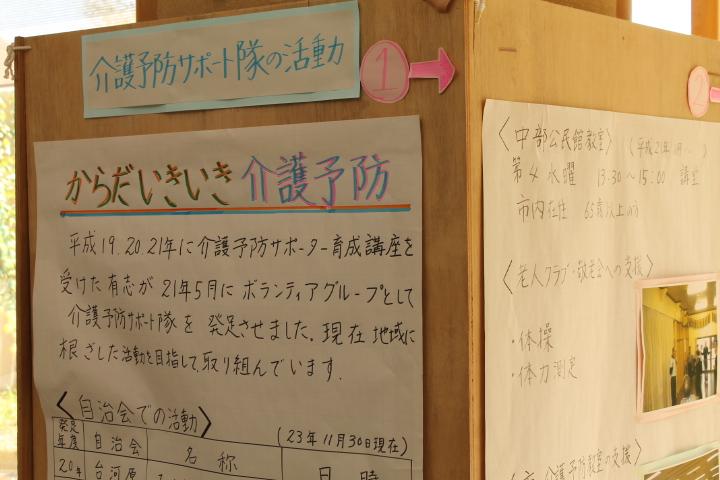 介護予防サポート隊の活動
1
からだいきいき介護予防
平成19.20.21年に介護予防サポーター育成講座を
受けた有志が21年5月にボランティアグループとして
介護予防サポート隊を発足させました.現在地域に
根ざした活動を目指して,取り組んでいます.
〈自治会での活動〉
(23年11月30日現在)
発足年度 自治会 名称 日時
20年 台河原
2
〈中部公民館教室〉
(平成21年
第4水曜 13:30〜15:00 講室
市内在住 65歳以上
〈老人クラブ・敬老会への支援〉
・体操
・体力測定
介護予防教室の支援〉